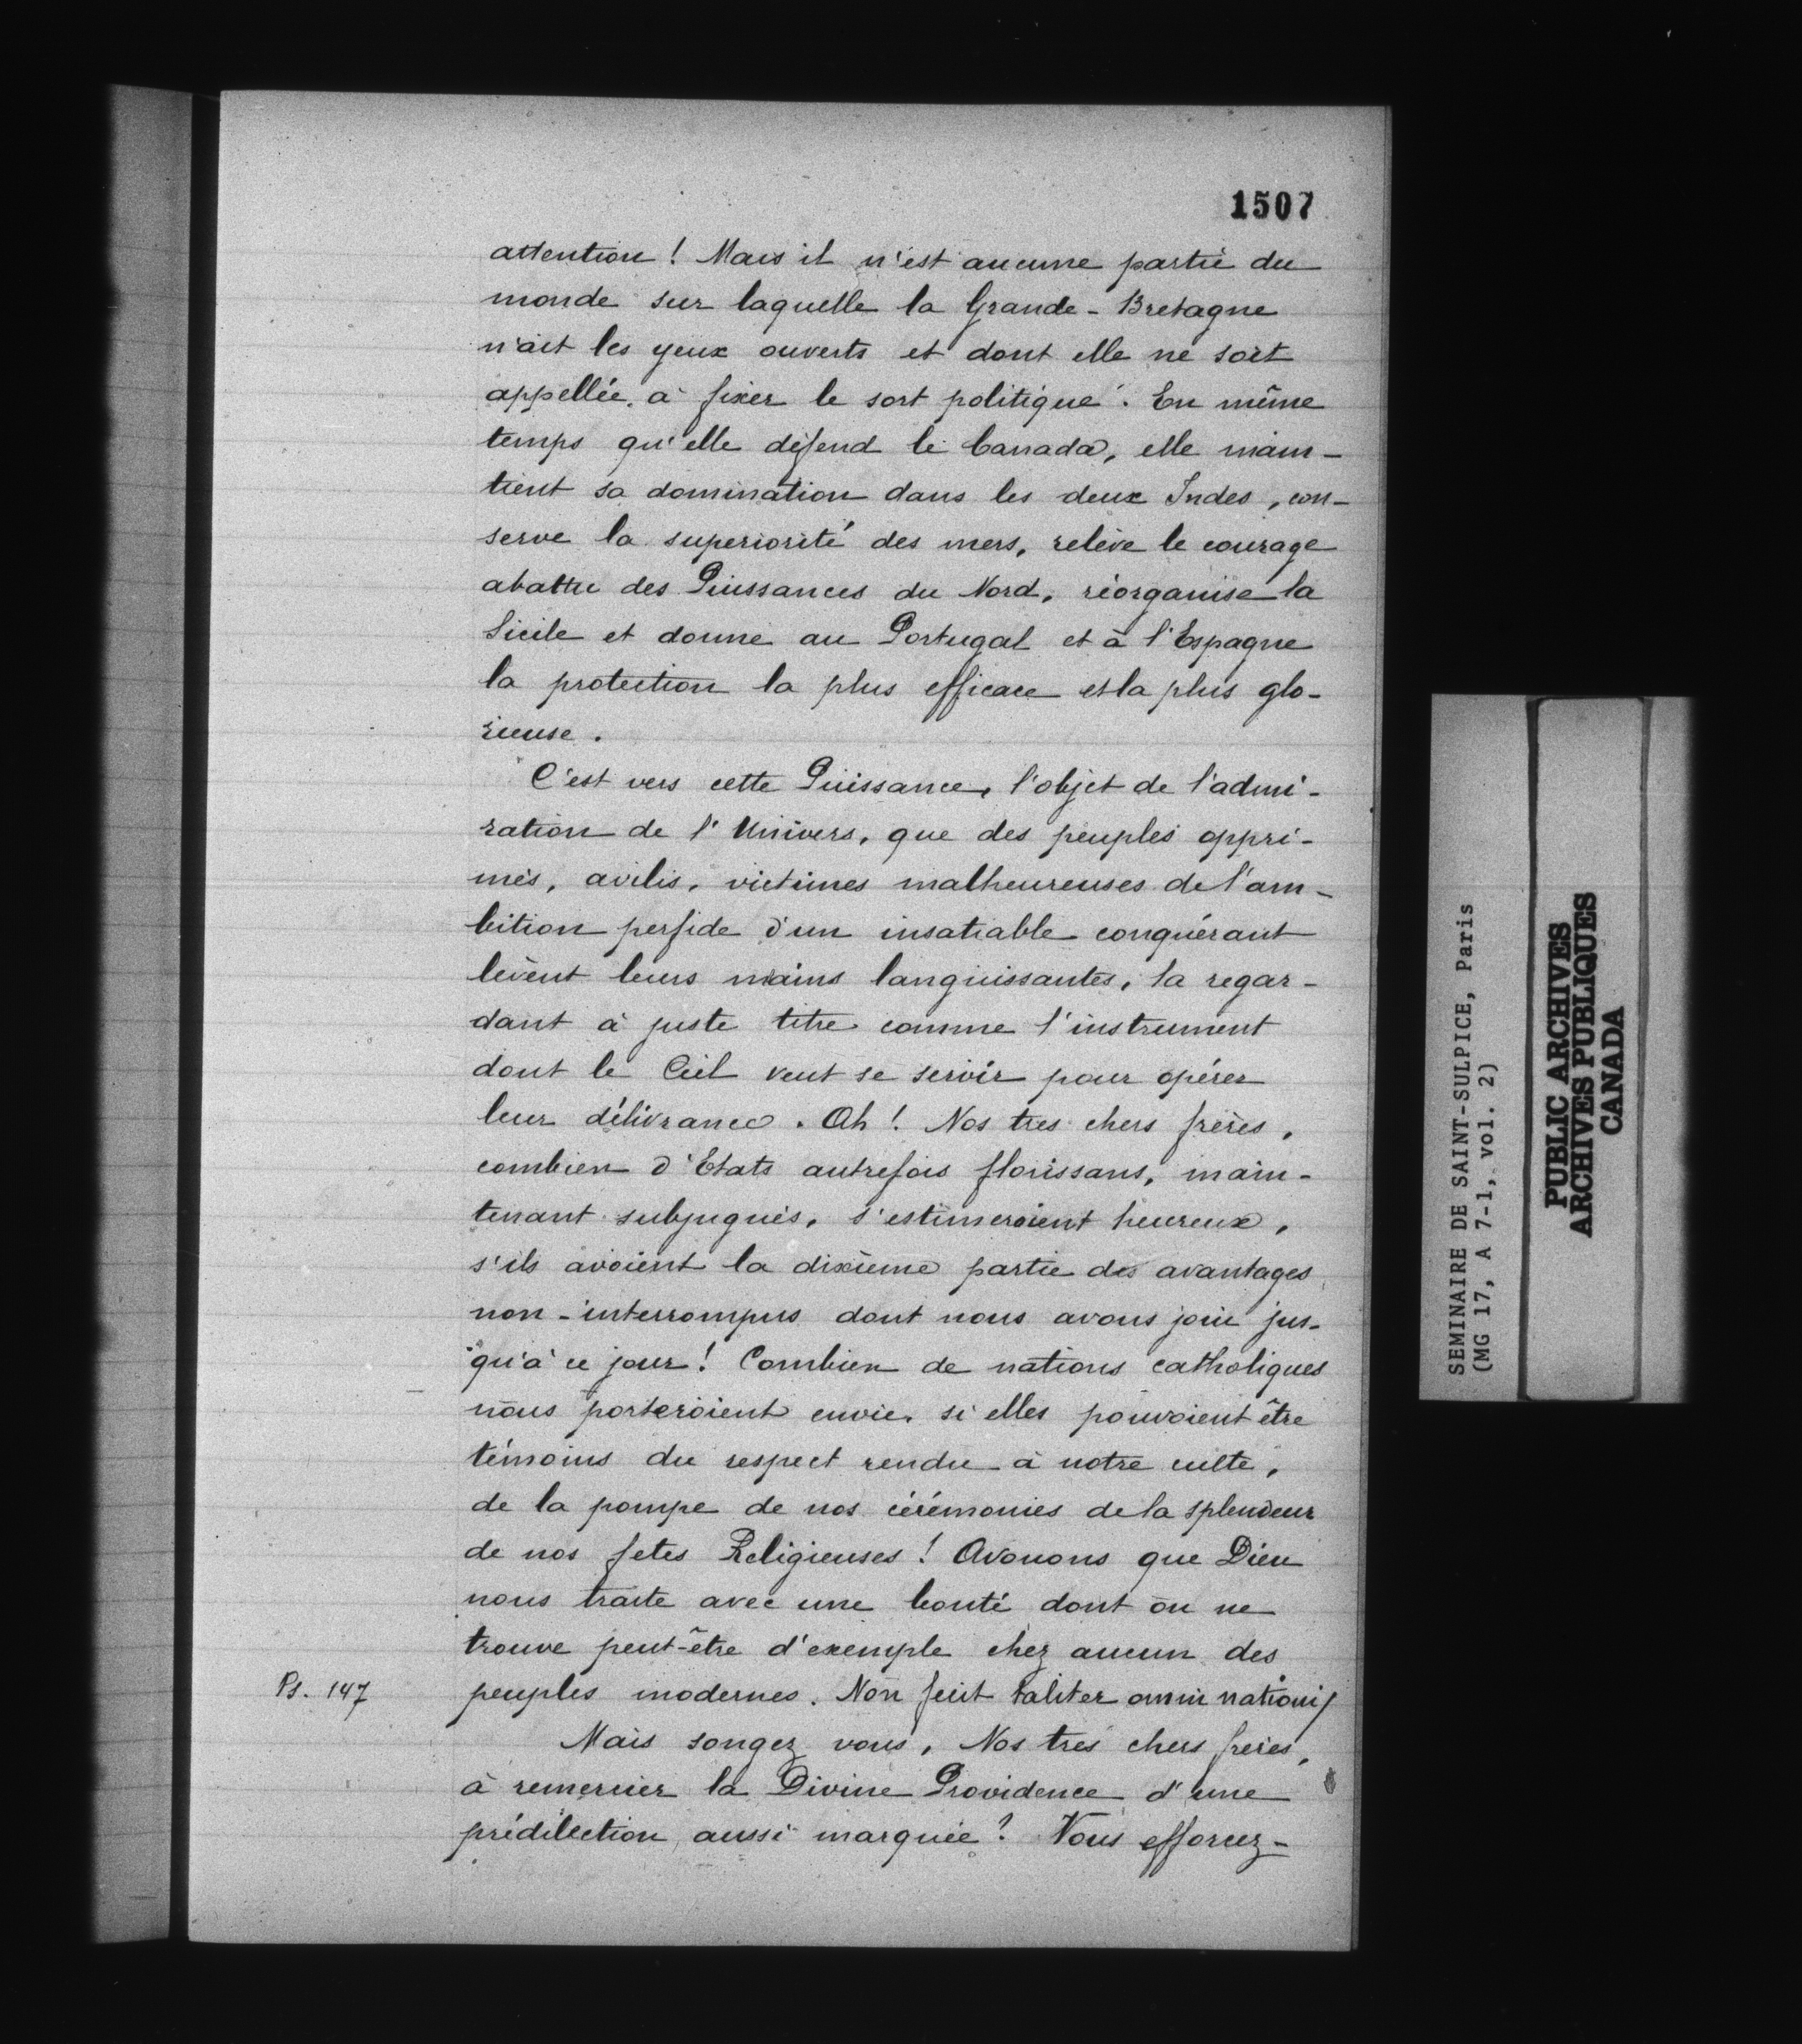 1507
attention ! Mais il n'est aucune partie du
monde sur laquelle la Grande-Bretagne
n'ait les yeux ouverts et dont elle ne soit
appellée à fixer le sort politique. En même
temps qu'elle défend le Canada, elle main-
tient sa domination dans les deux Indes, con-
serve la superiorité des mers, relève le courage
abattu des Puissances du Nord, réorganise la
Sicile et donne au Portugal et à l'Espagne
la protection la plus efficace et la plus glo-
rieuse.
C'est vers cette Puissance, l'objet de l'admi-
ration de l'Univers, que des peuples oppri-
més, avilis, victimes malheureuses de l'am-
bition perfide d'un insatiable conquérant
lèvent leurs mains languissantes, la regar-
dant à juste titre comme l'instrument
dont le Ciel veut se servir pour opérer
leur délivrance. Ah ! Nos tres chers frères,
combien d'Etats autrefois florissans, main-
tenant subjugués, s'estimeroient heureux,
s'ils avoient la dixième partie des avantages
non-interrompus dont nous avons joui jus-
qu'à ce jour ! Combien de nations catholiques
nous porteroient envie, si elles pouvoient être
témoins du respect rendu à notre culte,
de la pompe de nos cérémonies de la splendeur
de nos fetes Religieuses ! Avouons que Dieu
nous traite avec une bonté dont on ne
trouve peut-être d'exemple chez aucun des
Ps. 147 peuples modernes. Non fecit taliter omni nationi/
Mais songez vous, Nos tres chers freres,
à remercier la Divine Providence d'une
prédilection aussi marquée ? Vous efforcez-
SEMINAIRE DE SAINT-SULPICE, Paris
(MG 17, A 7-1, vol. 2)
PUBLIC ARCHIVES
ARCHIVES PUBLIQUES
CANADA